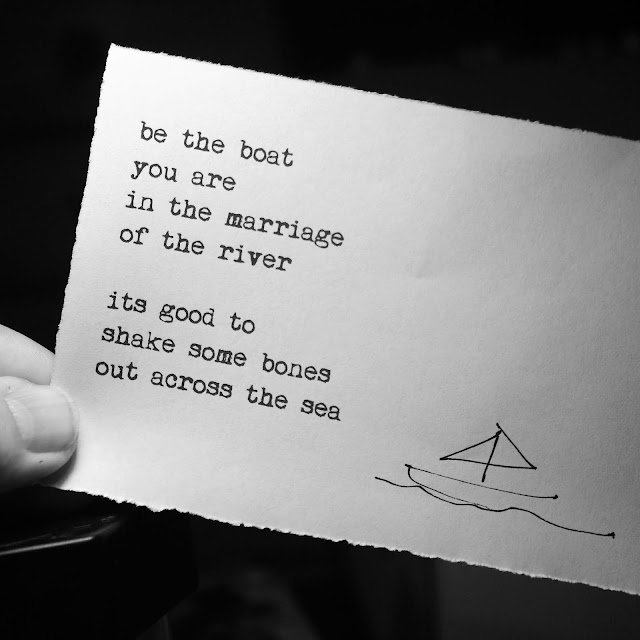 be the boat
you are
in the marriage
of the river
its good to
shake some bones
out across the sea